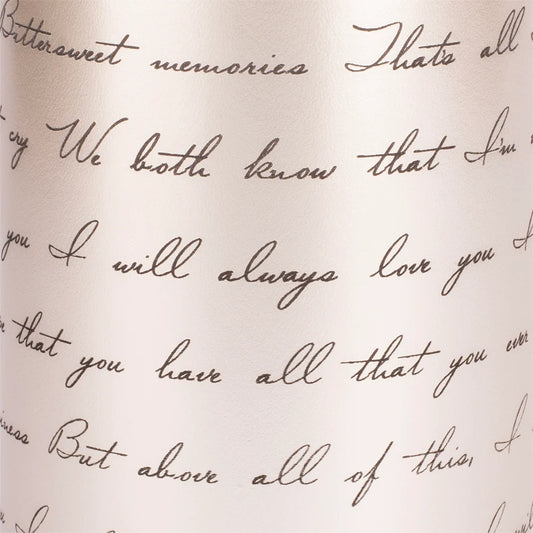 Bittersweet memories That's all
cry We both know that I'm
you I will always love you I
that you have all that you ever
But above all of this, I